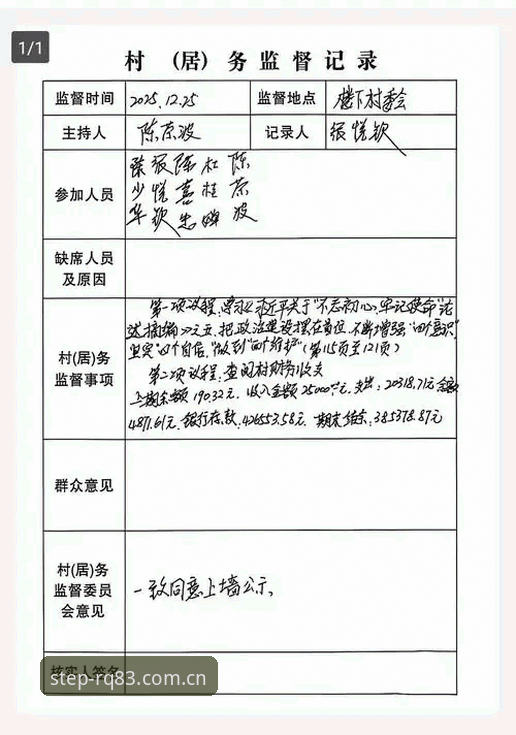 1/1
村 (居) 务 监 督 记 录
监督时间 2025.12.25 监督地点 楼下村委会
主持人 陈京波 记录人 张悦钦
参加人员
张 陈 杜 陈
少 悦 喜 桂 京
华 钦 忠 婵 波
缺席人员
及原因
村(居)务
监督事项
第一项议程:学习习近平关于"不忘初心、牢记使命"论
述摘编》之五、把政治建设摆在首位,不断增强"四个意识",
坚定"四个自信",做到"两个维护"(第115页至121页)
第二项议程:查阅村财务收支
上期余额190.32元,收入金额25000元,支出:20318.71元
4871.61元.银行存款:426553.58元 期末结余:385378.87元
群众意见
村(居)务
监督委员
会意见
一致同意上墙公示.
核实人签名
step-rq83.com.cn